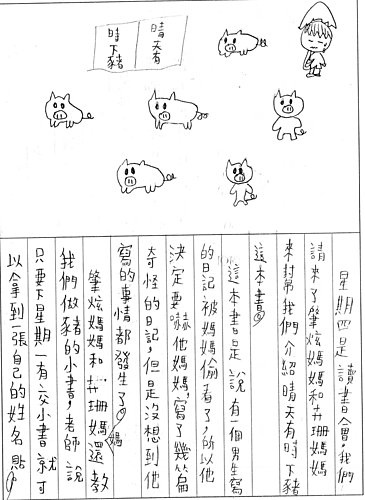 晴天有
時下豬
星期四是讀書會,我們
請來了肇炫媽媽和卉珊媽媽
來幫我們介紹晴天有時下豬
這本書。
這本書是說有一個男生寫
的日記被媽媽偷看了,所以他
決定要嚇他媽媽,寫了幾篇
奇怪的日記,但是沒想到他
寫的事情都發生了。
肇炫媽媽和卉珊媽媽還教
我們做豬的小書,老師說
只要下星期一有交小書就可
以拿到一張自己的姓名貼